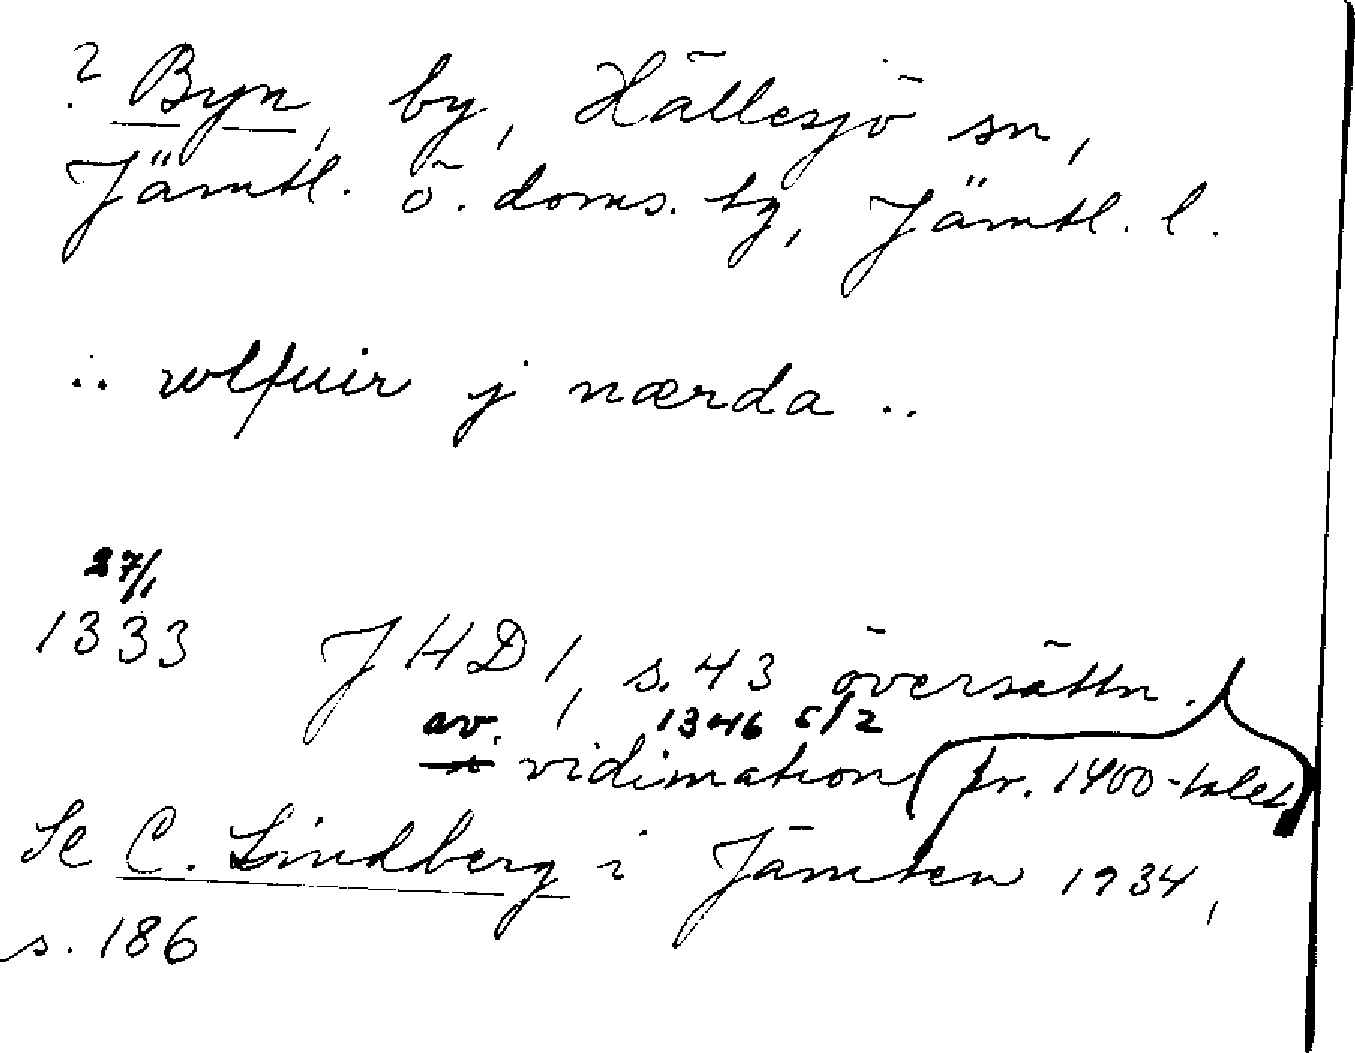 ? Byn, by, Hällesjö sn,
Jämtl. ö. doms. by, Jämtl. l.
.. wlfuir j nærda ..
27/1
1333 JHD 1, s. 43 översättn.
av 1346 5/2
vidimation (fr. 1400-talet)
Se C. Lindberg i Jämten 1934,
s. 186